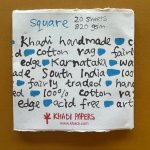 Square 20 sheets
820 gsm
Khadi handmade c
cotton rag fairl
edge Karnataka w
made South India 100
fairly traded hand
100% cotton ray
edge acid free art
KHADI PAPERS
www.khadi.com